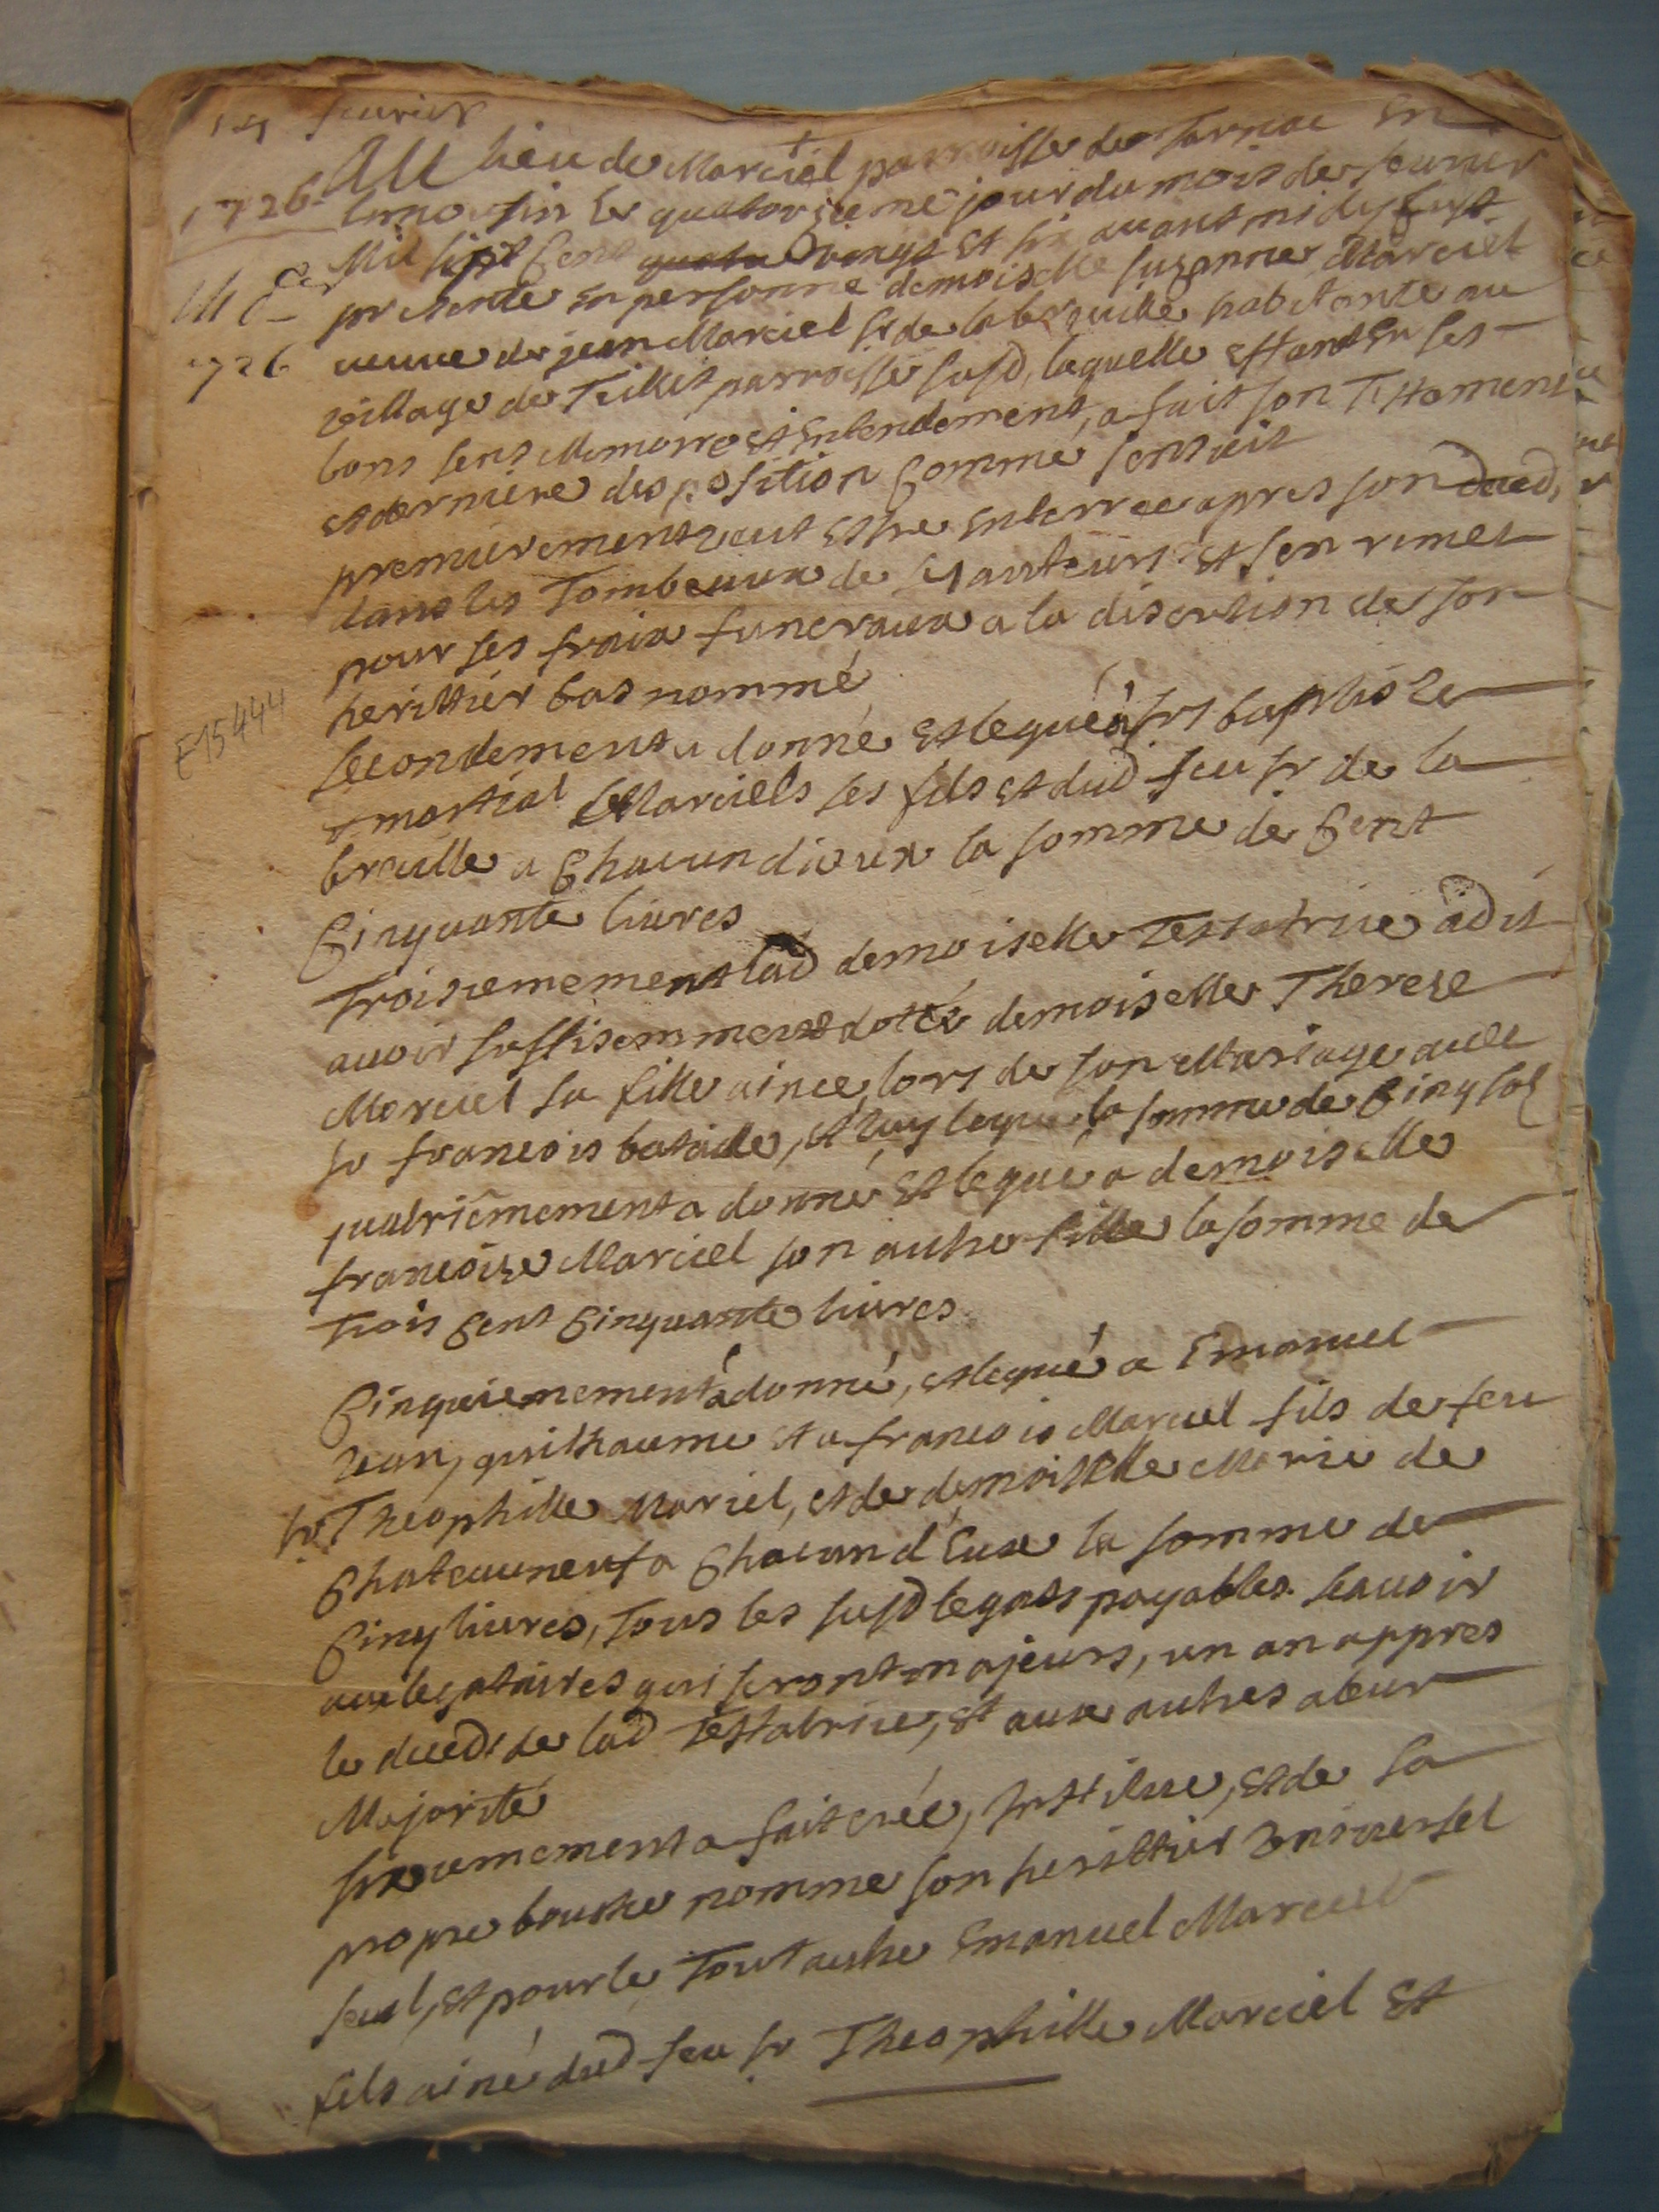 14 feurier
1726
Au lieu de Marciel parroisse de Tarnac En
limousin Le quatorzieme jour du mois de feurier
Mil sept Cent quatre vingt et six auant midy fust
presente En personne demoiselle suzanne Marciel
726
veuve de jean Marciel sr de labraulle habitante au
village de Tillet parroisse susd, laquelle Estant En ses
bons sens Memoire et Entendement, a fait son Testament
et derniere disposition Comme sensuit
premierement veut Estre Enterree apres son deced,
dans les Tombeaux de sy auteurs et sen remet
pour ses fraix funeraux a la discretion de son
herittier bas nommé
E15444
secondement a donné et legué a srs baptiste
& martial Marciels ses fils et dud feu sr de la
braulle a Chacun dieux la somme de Cent
Cinquante livres
Troisiemement lad demoiselle Testatrice a dit
auoir suffisemment dotté demoiselle Therese
Marciel sa fille ainee, lors de son Mariage auec
sr francois bataille, et luy legue la somme de Cinq sols
quatriemement a donné et legué a demoiselle
francoise Marciel son autre fille la somme de
Trois Cent Cinquante livres
Cinquiemement a donné, et legué a Emanuel
Jean, guilhaume et a francois Marciel fils de feu
sr Theophille Marciel, et de demoiselle Marie de
Chateauneuf a Chacun d Eux la somme de
Cinq livres, Tous les susd legats payables scauoir
aux legataires qui seront majeurs, un an appres
le deced de lad Testatrice, et aux autres a leur
Majorité
sixiemement a fait creé, Institue, et de sa
propre bouche nomme son herittier Vniuersel
seul, et pour le Tout autre Emanuel Marciel
fils ainé dud feu sr Theophille Marciel et